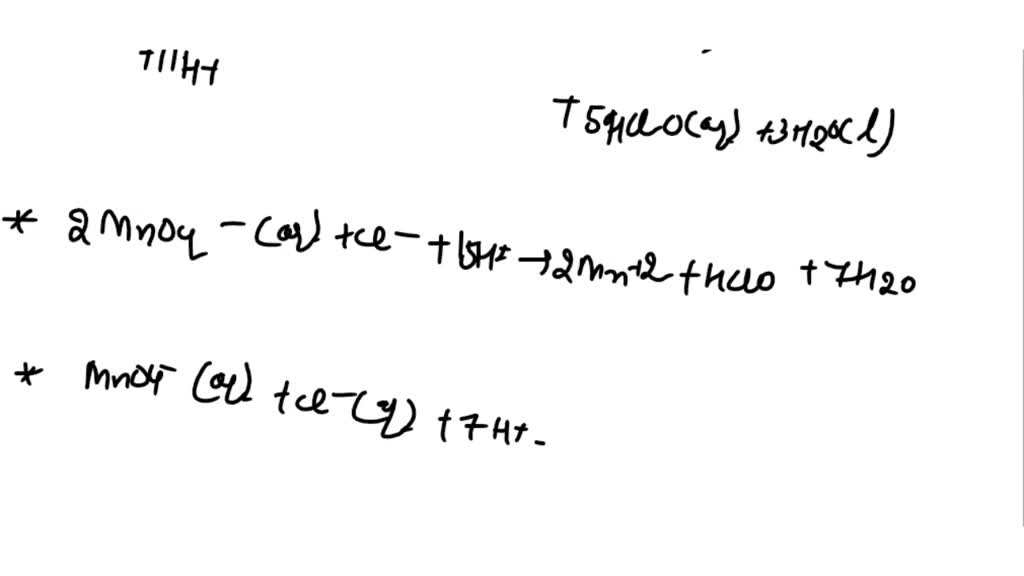 +11H+
+ 5HClO(aq) + 3H2O(l)
* 2MnO4 - (aq) + Cl - + 15H+ → 2Mn+2 + HClO + 7H2O
* MnO4- (aq) + Cl-(aq) + 7H+